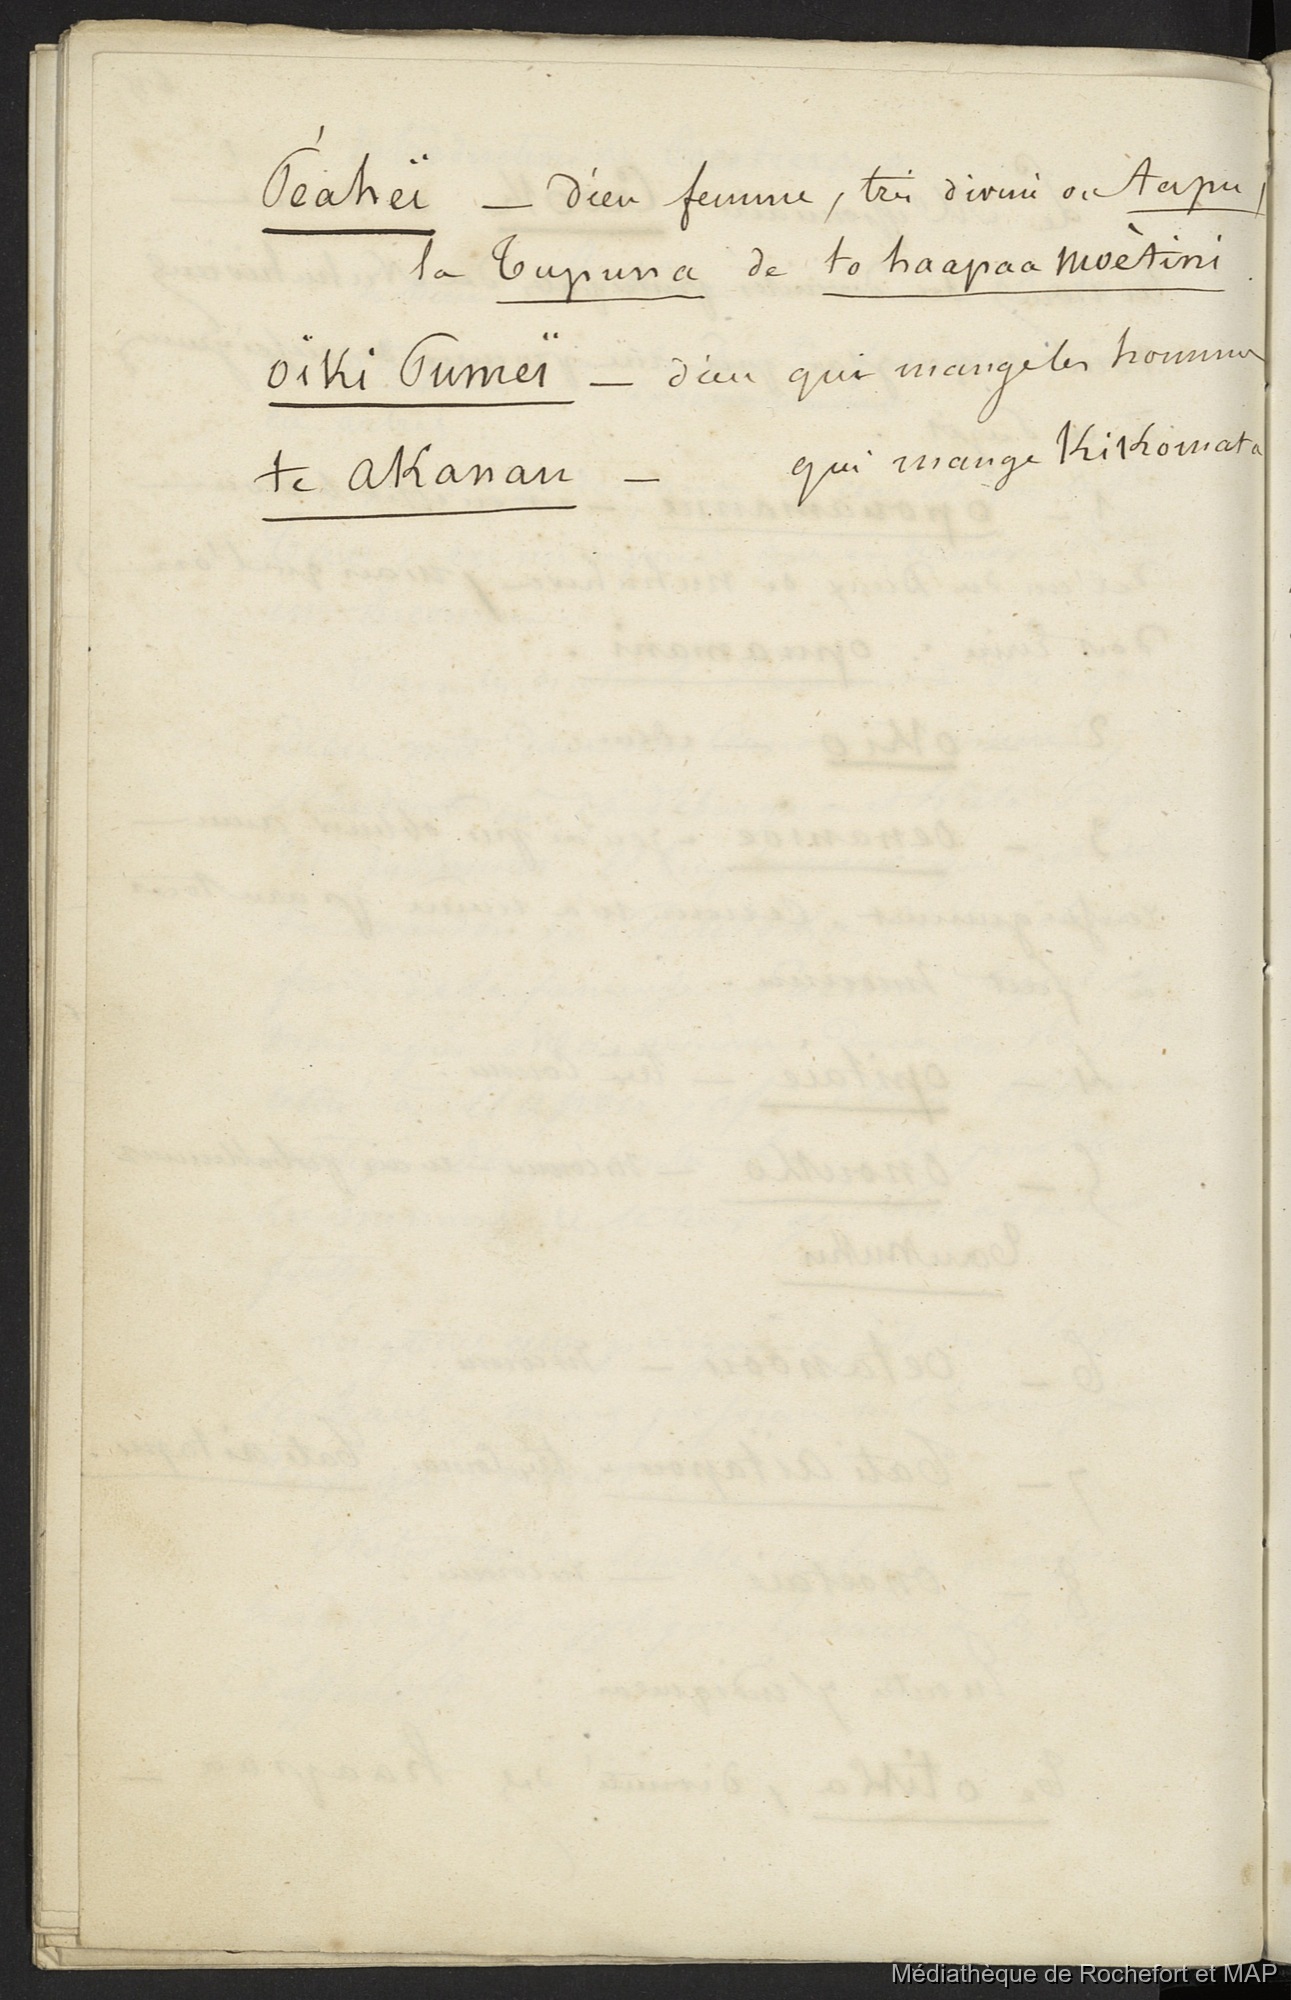 Téaheï — Dieu femme, très divini ou tapu,
la Tupuna de to haapaa Moètini
oïki Tumeï — dieu qui mange les hommes
te akanau — qui mange Kikomata
Médiathèque de Rochefort et MAP